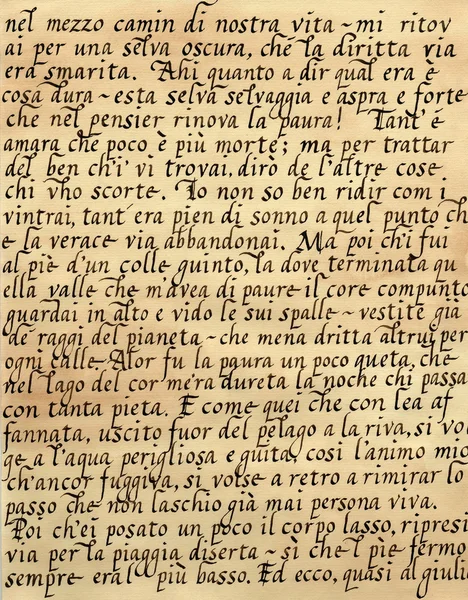 nel mezzo camin di nostra vita ~ mi ritov
ai per una selva oscura, ché la diritta via
era smarita. Ahi quanto a dir qual era è
cosa dura ~ esta selva selvaggia e aspra e forte
che nel pensier rinova la paura! Tant'é
amara che poco è più morte; ma per trattar
del ben ch'i' vi trovai, dirò de l'altre cose
chi vho scorte. Io non so ben ridir com i
vintrai, tant'era pien di sonno a quel punto ch
e la verace via abbandonai. Ma poi ch'i fui
al piè d'un colle guinto, la dove terminata qu
ella valle che m'avea di paure il core compunto
guardai in alto e vido le sui spalle ~ vestite già
de' raggi del pianeta ~ che mena dritta altrui per
ogni calle. Alor fu la paura un poco queta, che
nel lago del cor m'era dureta la noche chi passa
con tanta pieta. E come quei che con lea af
fannata, uscito fuor del pelago a la riva, si vo
ge a l'aqua perigliosa e guita, così l'animo mio
ch'ancor fuggiva, si volse a retro a rimirar lo
passo che non laschio già mai persona viva.
Poi ch'ei posato un poco il corpo lasso, ripresi
via per la piaggia diserta ~ sì che l pie fermo
sempre era l più basso. Ed ecco, quasi al